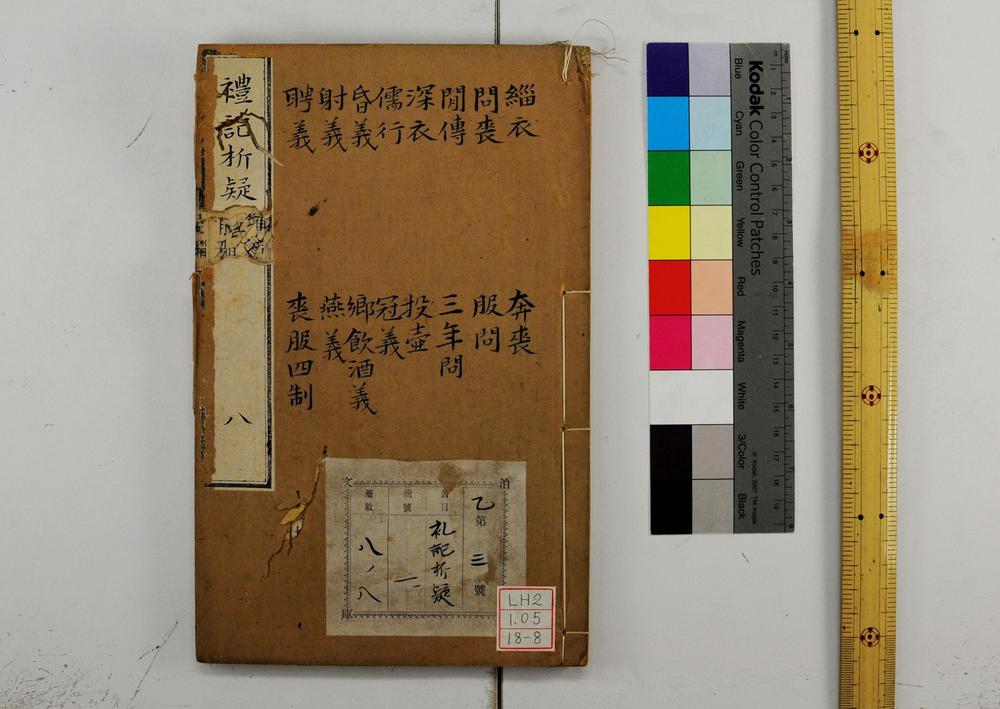 禮記析疑
八
緇衣
奔喪
問喪
服問
閒傳
三年問
深衣
投壺
儒行
冠義
昏義
鄉飲酒義
射義
燕義
聘義
喪服四制
泊
文
庫
乙第三號
書目
札記析疑
冊數
八ノ八
LH2
1.05
18-8
Kodak Color Control Patches
Blue
Cyan
Green
Yellow
Red
Magenta
White
3/Color
Black